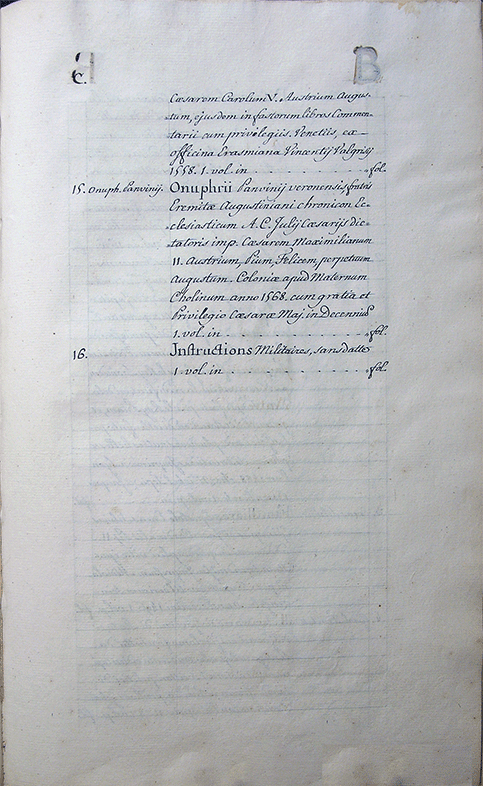 C.
B
Cæsarem Carolum V. Austrium Augus-
tum, ejusdem in fastorum libros Commen-
tarii cum privilegiis. Venetiis, ex
Officina Erasmiana Vincentij Valgrisij
1558. 1. vol. in . . . . . . . . fol.
15. Onuph. Panvinij. Onuphrii Panvinij veronensis, fratris
Eremitæ Augustiniani chronicon Ec-
clesiasticum A. C. Julij Cæsarijs dic-
tatoris imp. Cæsarem Maximilianum
11. Austrium, Pium, Felicem, perpetuum
Augustum. Coloniæ apud Maternum
Cholinum anno 1568. cum gratia et
Privilegio Cæsaræ Maj. in Decennius
1. vol. in . . . . . . . . fol.
16. Instructions Militaires, sans datte
1. vol. in . . . . . . . . fol.